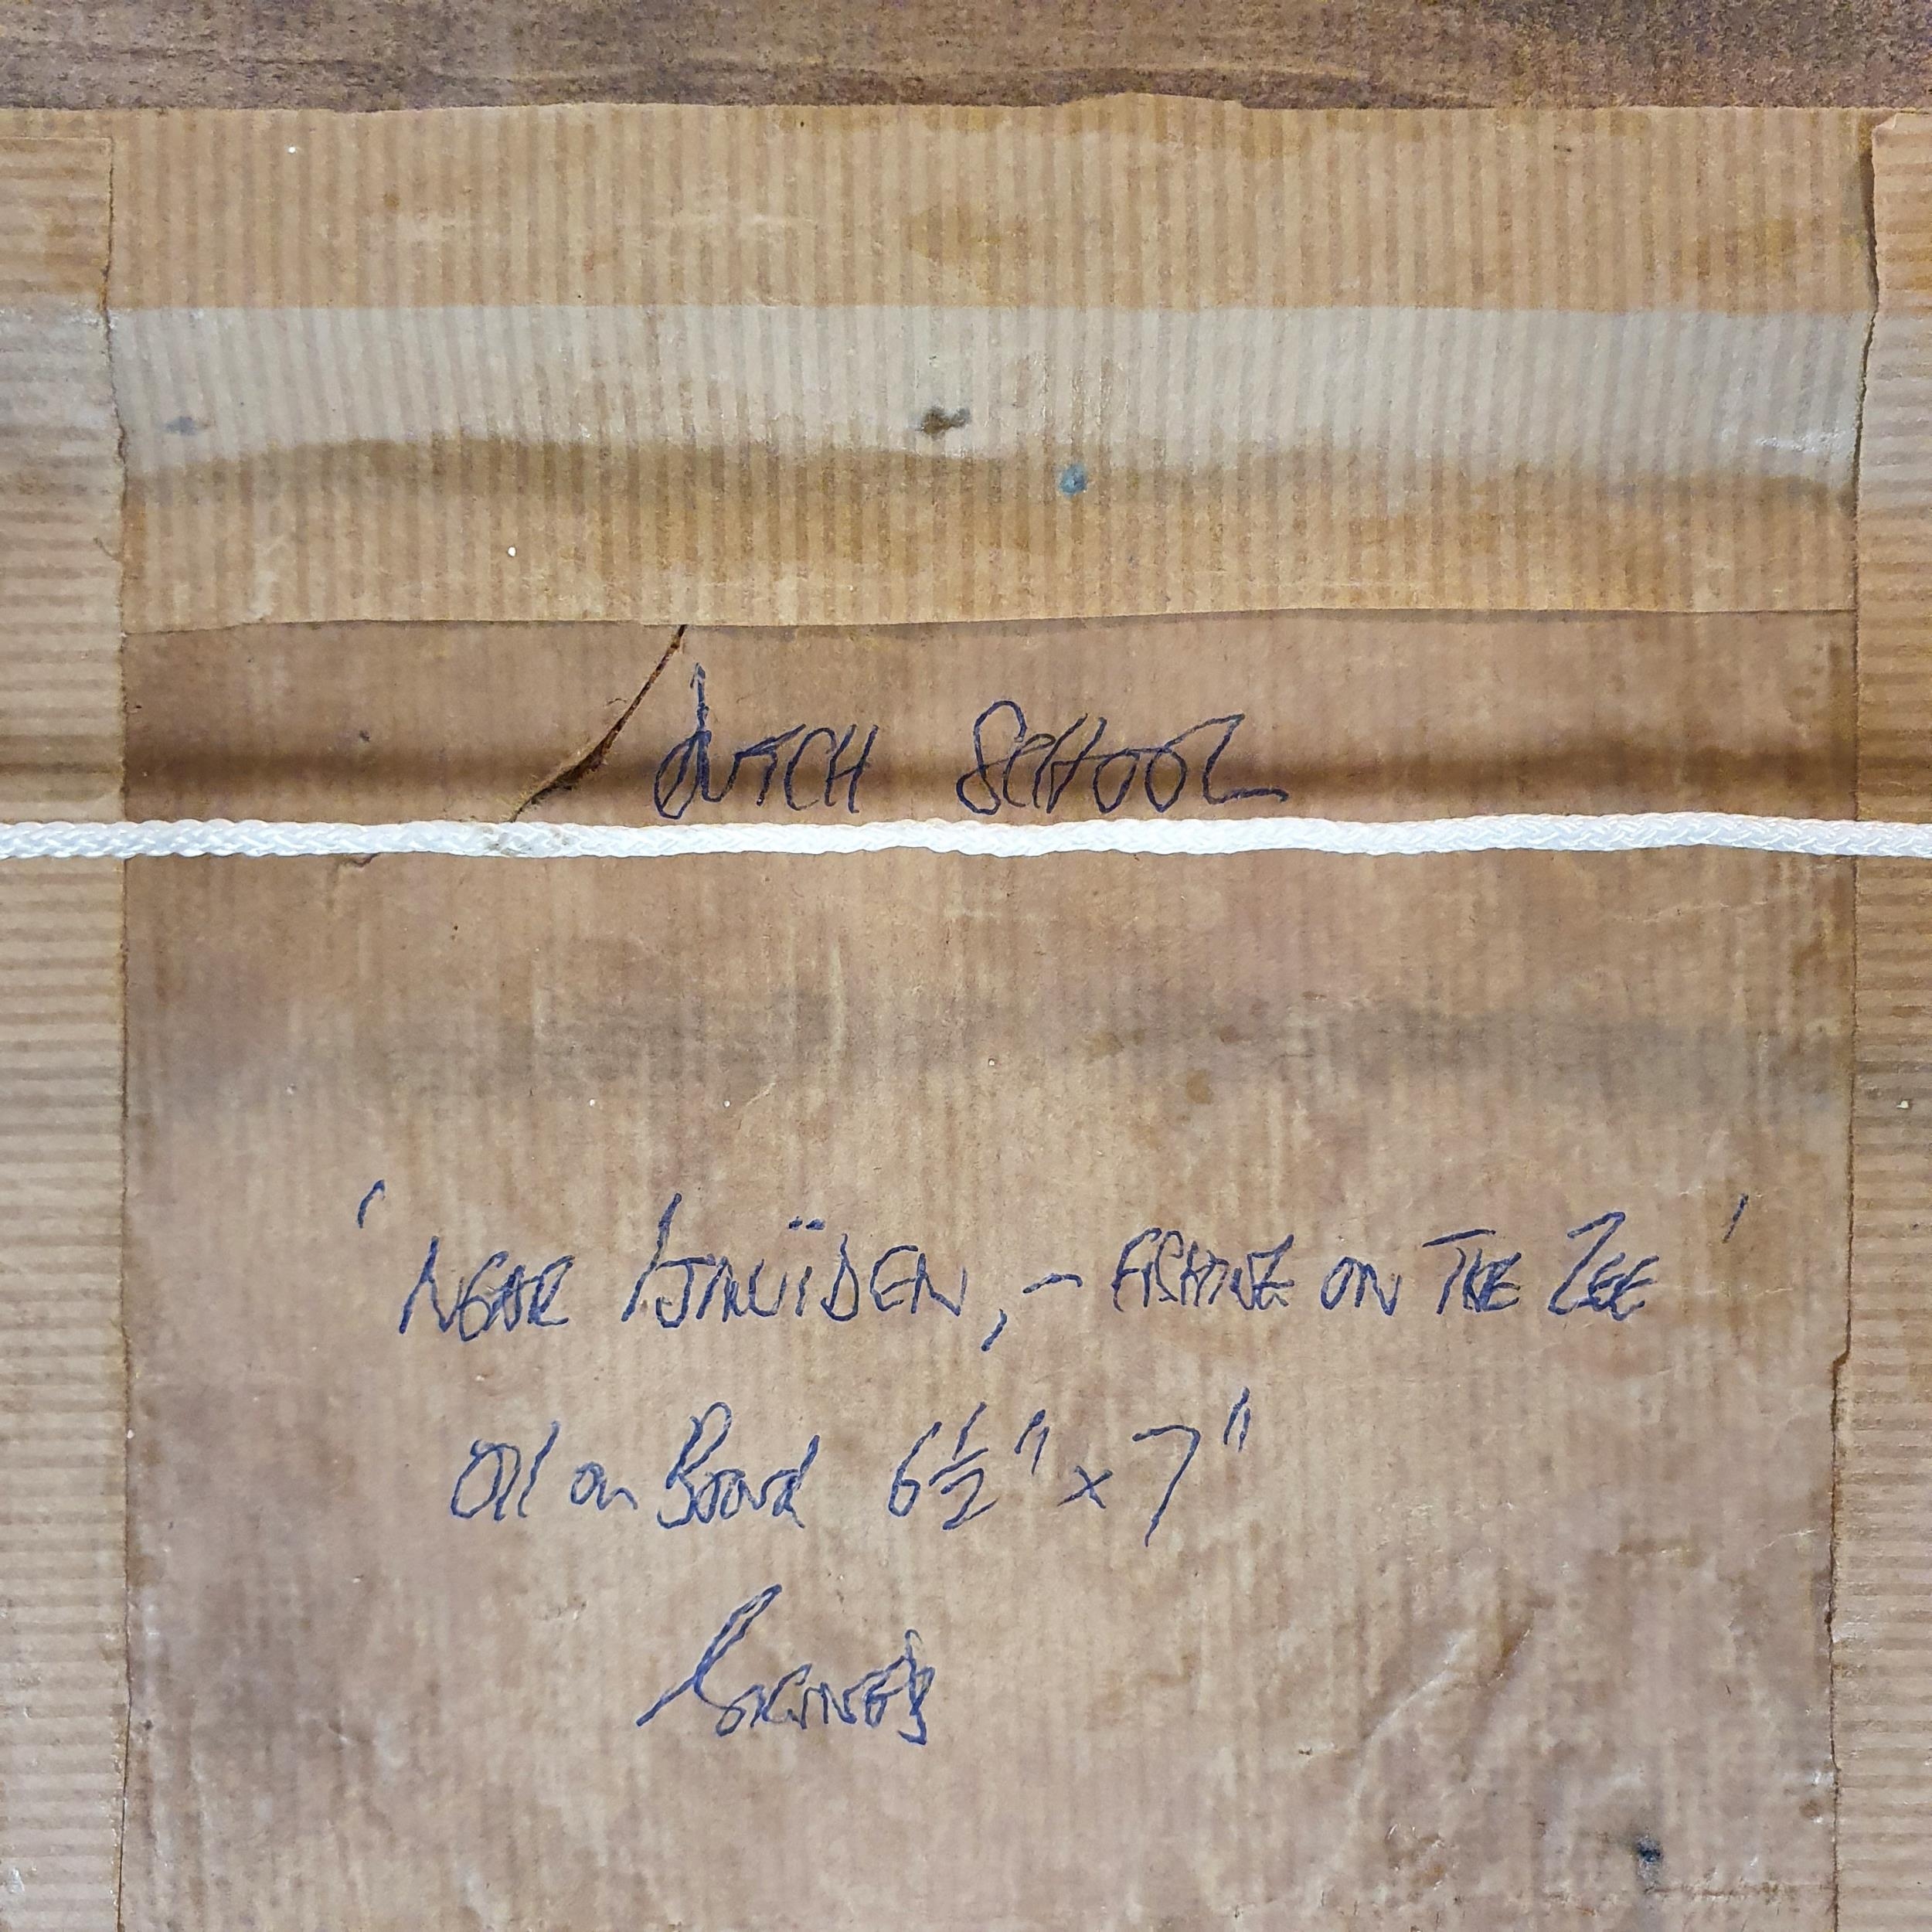 DUTCH SCHOOL
'NEAR IJMUÏDEN, - FISHING ON THE ZEE'
Oil on Board 6½" x 7"
SIGNED